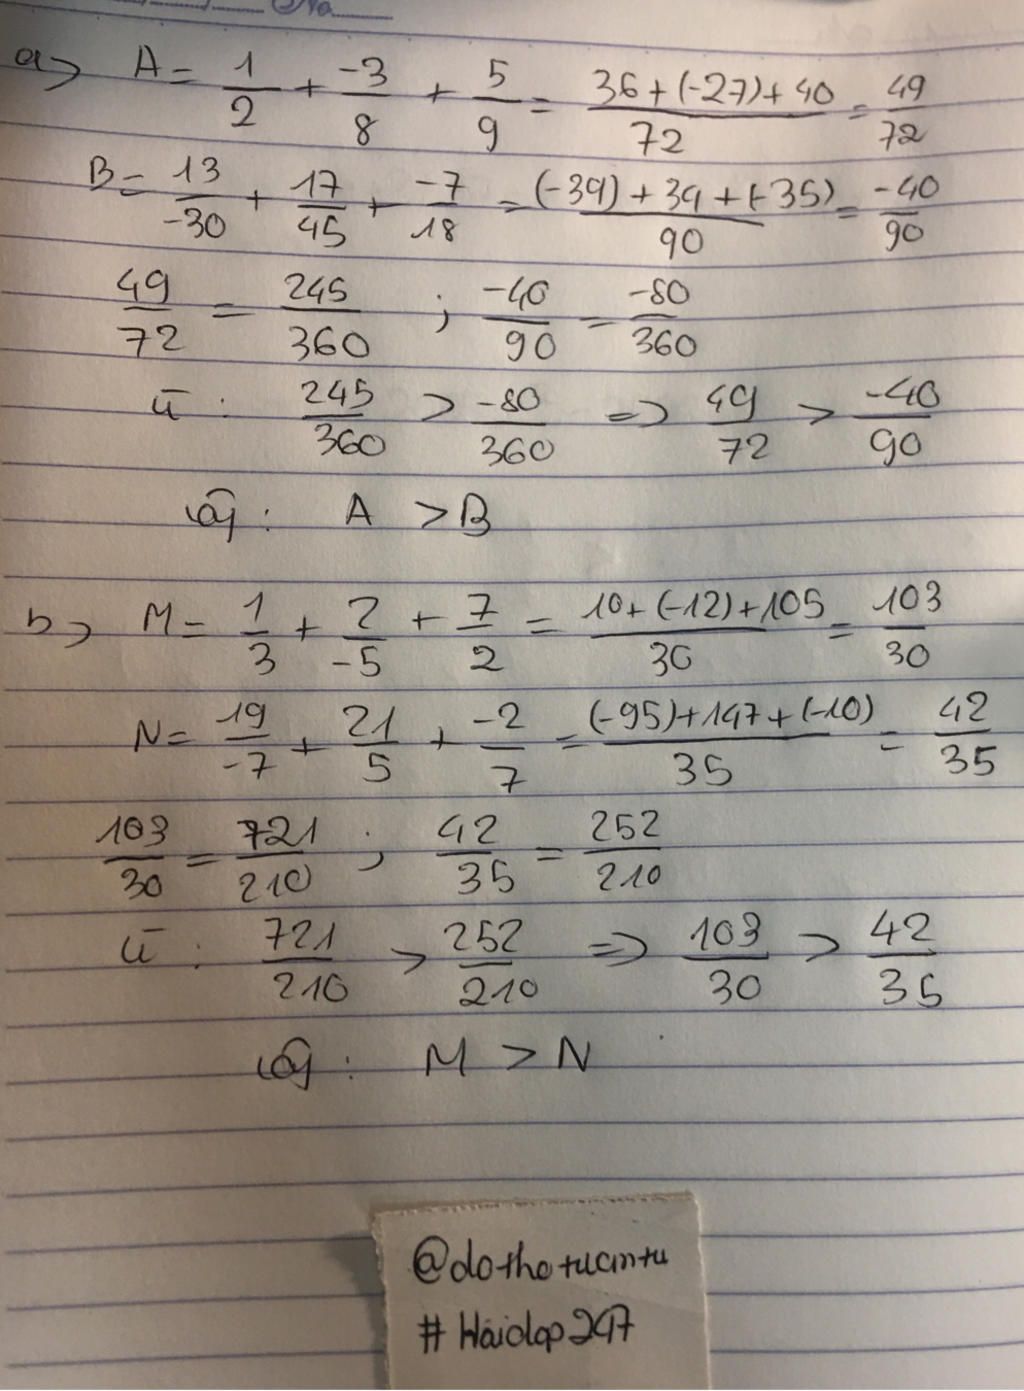 No
a) A = 1/2 + -3/8 + 5/9 = 36+(-27)+40/72 = 49/72
B = 13/-30 + 17/45 + -7/18 = (-39)+34+(-35)/90 = -40/90
49/72 = 245/360 ; -40/90 = -80/360
: 245/360 > -80/360 => 49/72 > -40/90
: A > B
b) M = 1/3 + 2/-5 + 7/2 = 10+(-12)+105/30 = 103/30
N = 19/-7 + 21/5 + -2/7 = (-95)+147+(-10)/35 = 42/35
103/30 = 721/210 ; 42/35 = 252/210
: 721/210 > 252/210 => 103/30 > 42/35
: M > N
#Hoidap247